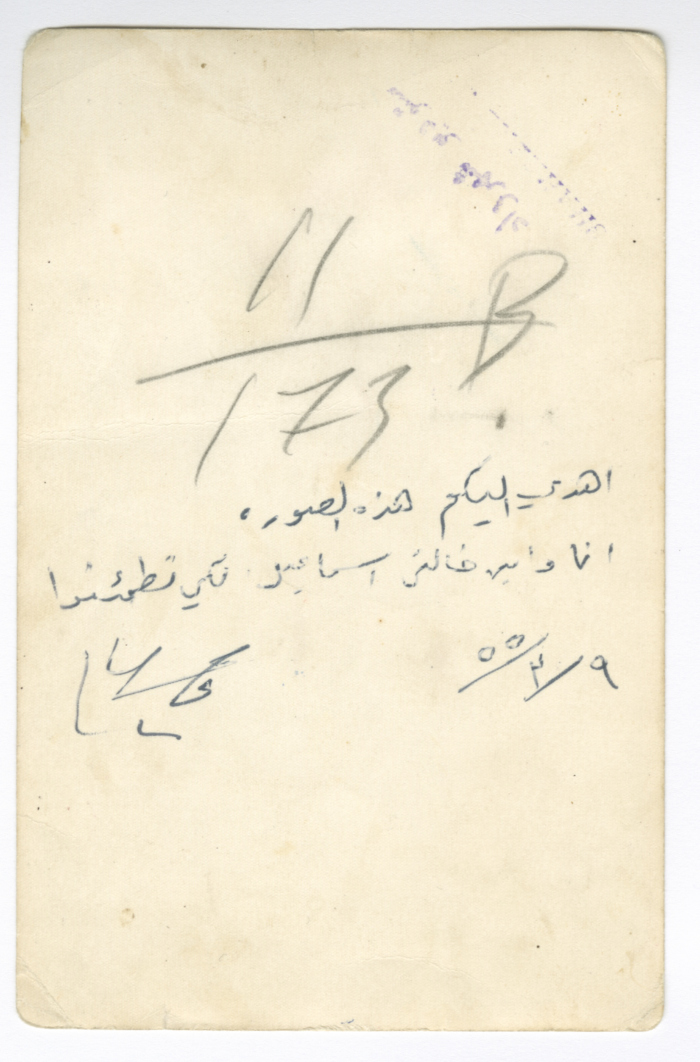 11
B
173
اهدي اليكم هذه الصوره
انا وابن خالتي اسماعيل لكي تطمئنوا
٩/٣/٥٥